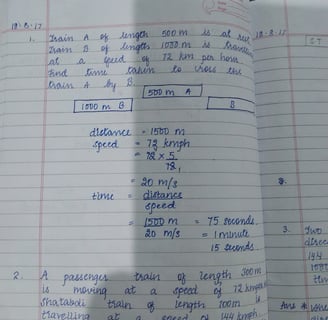 18-8-17
1. Train A of length 500 m is at rest
Train B of length 1000 m is travelling
at a speed of 72 km per hour
find time taken to cross the
train A by B.
500 m A
1000 m B
B
distance = 1500 m
speed = 72 kmph
= 72 × 5
18
= 20 m/s
time = distance
speed
= 1500 m = 75 seconds
20 m/s = 1 minute
15 seconds
2. A passenger train of length 300 m
is moving at a speed of 72 kmph
Shatabdi train of length 200m is
travelling at a speed of 144 kmph
18-8-17
3. Two
Ans